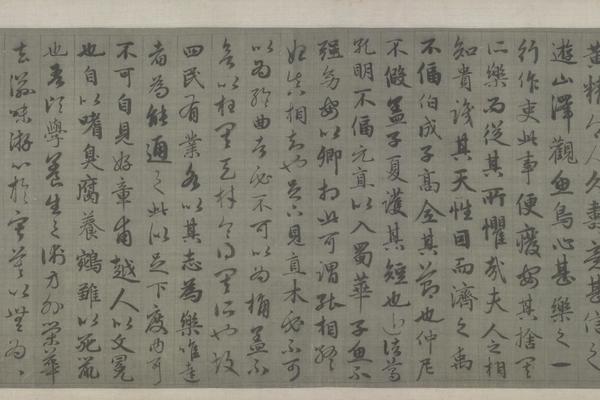 黃精令人久壽意甚信之
遊山澤觀魚鳥心甚樂之一
行作吏此事便廢安其捨其
所樂而從其所懼哉夫人之相
知貴識其天性因而濟之禹
不偪伯成子高全其節也仲尼
不假蓋子夏護其短也近諸葛
孔明不偪元直以入蜀華子魚不
強幼安以卿相此可謂能相終
始真相知也足下見直木必不可
以為輪曲者必不可以為桷蓋不
欲以枉其天材令得其所也故
四民有業各以其志為樂唯達
者為能通之此似足下度內耳
不可自見好章甫越人以文冕
也自以嗜臭腐養鵷雛以死鼠
也吾頃學養生之術方外榮華
去滋味游心於寂莫以無為為